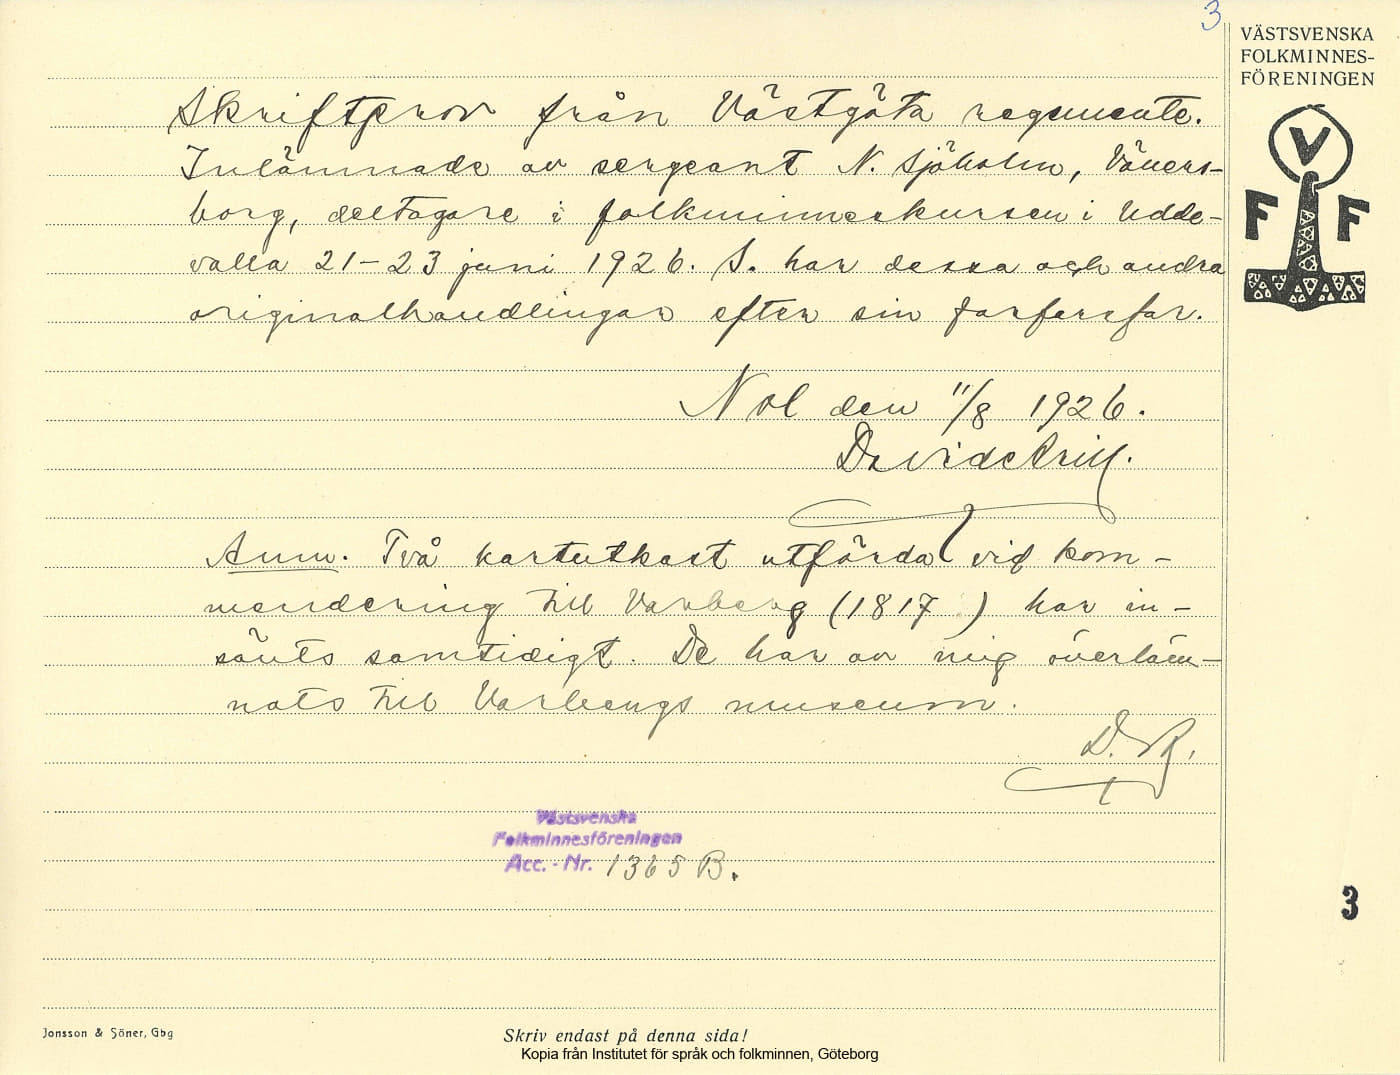 3
VÄSTSVENSKA
FOLKMINNES-
FÖRENINGEN
V
F F
Skriftprov från Västgöta regemente.
Inlämnade av sergeant N. Sjöholm,Väners-
borg, deltagare i folkminneskursen i Udde-
valla 21-23 juni 1926. S. har dessa och andra
originalhandlingar efter sin farfarsfar.
Nol den 11/8 1926.
David
Anm. Två kartutkast utförda vid kom-
mendering till Varberg (1817) har in-
sänts samtidigt. De har av mig överläm-
nats till Varbergs museum.
D. A.
Västsvenska
Folkminnesföreningen
Acc. - Nr. 1365 B.
3
Jonsson & Söner, Gbg
Skriv endast på denna sida!
Kopia från Institutet för språk och folkminnen, Göteborg